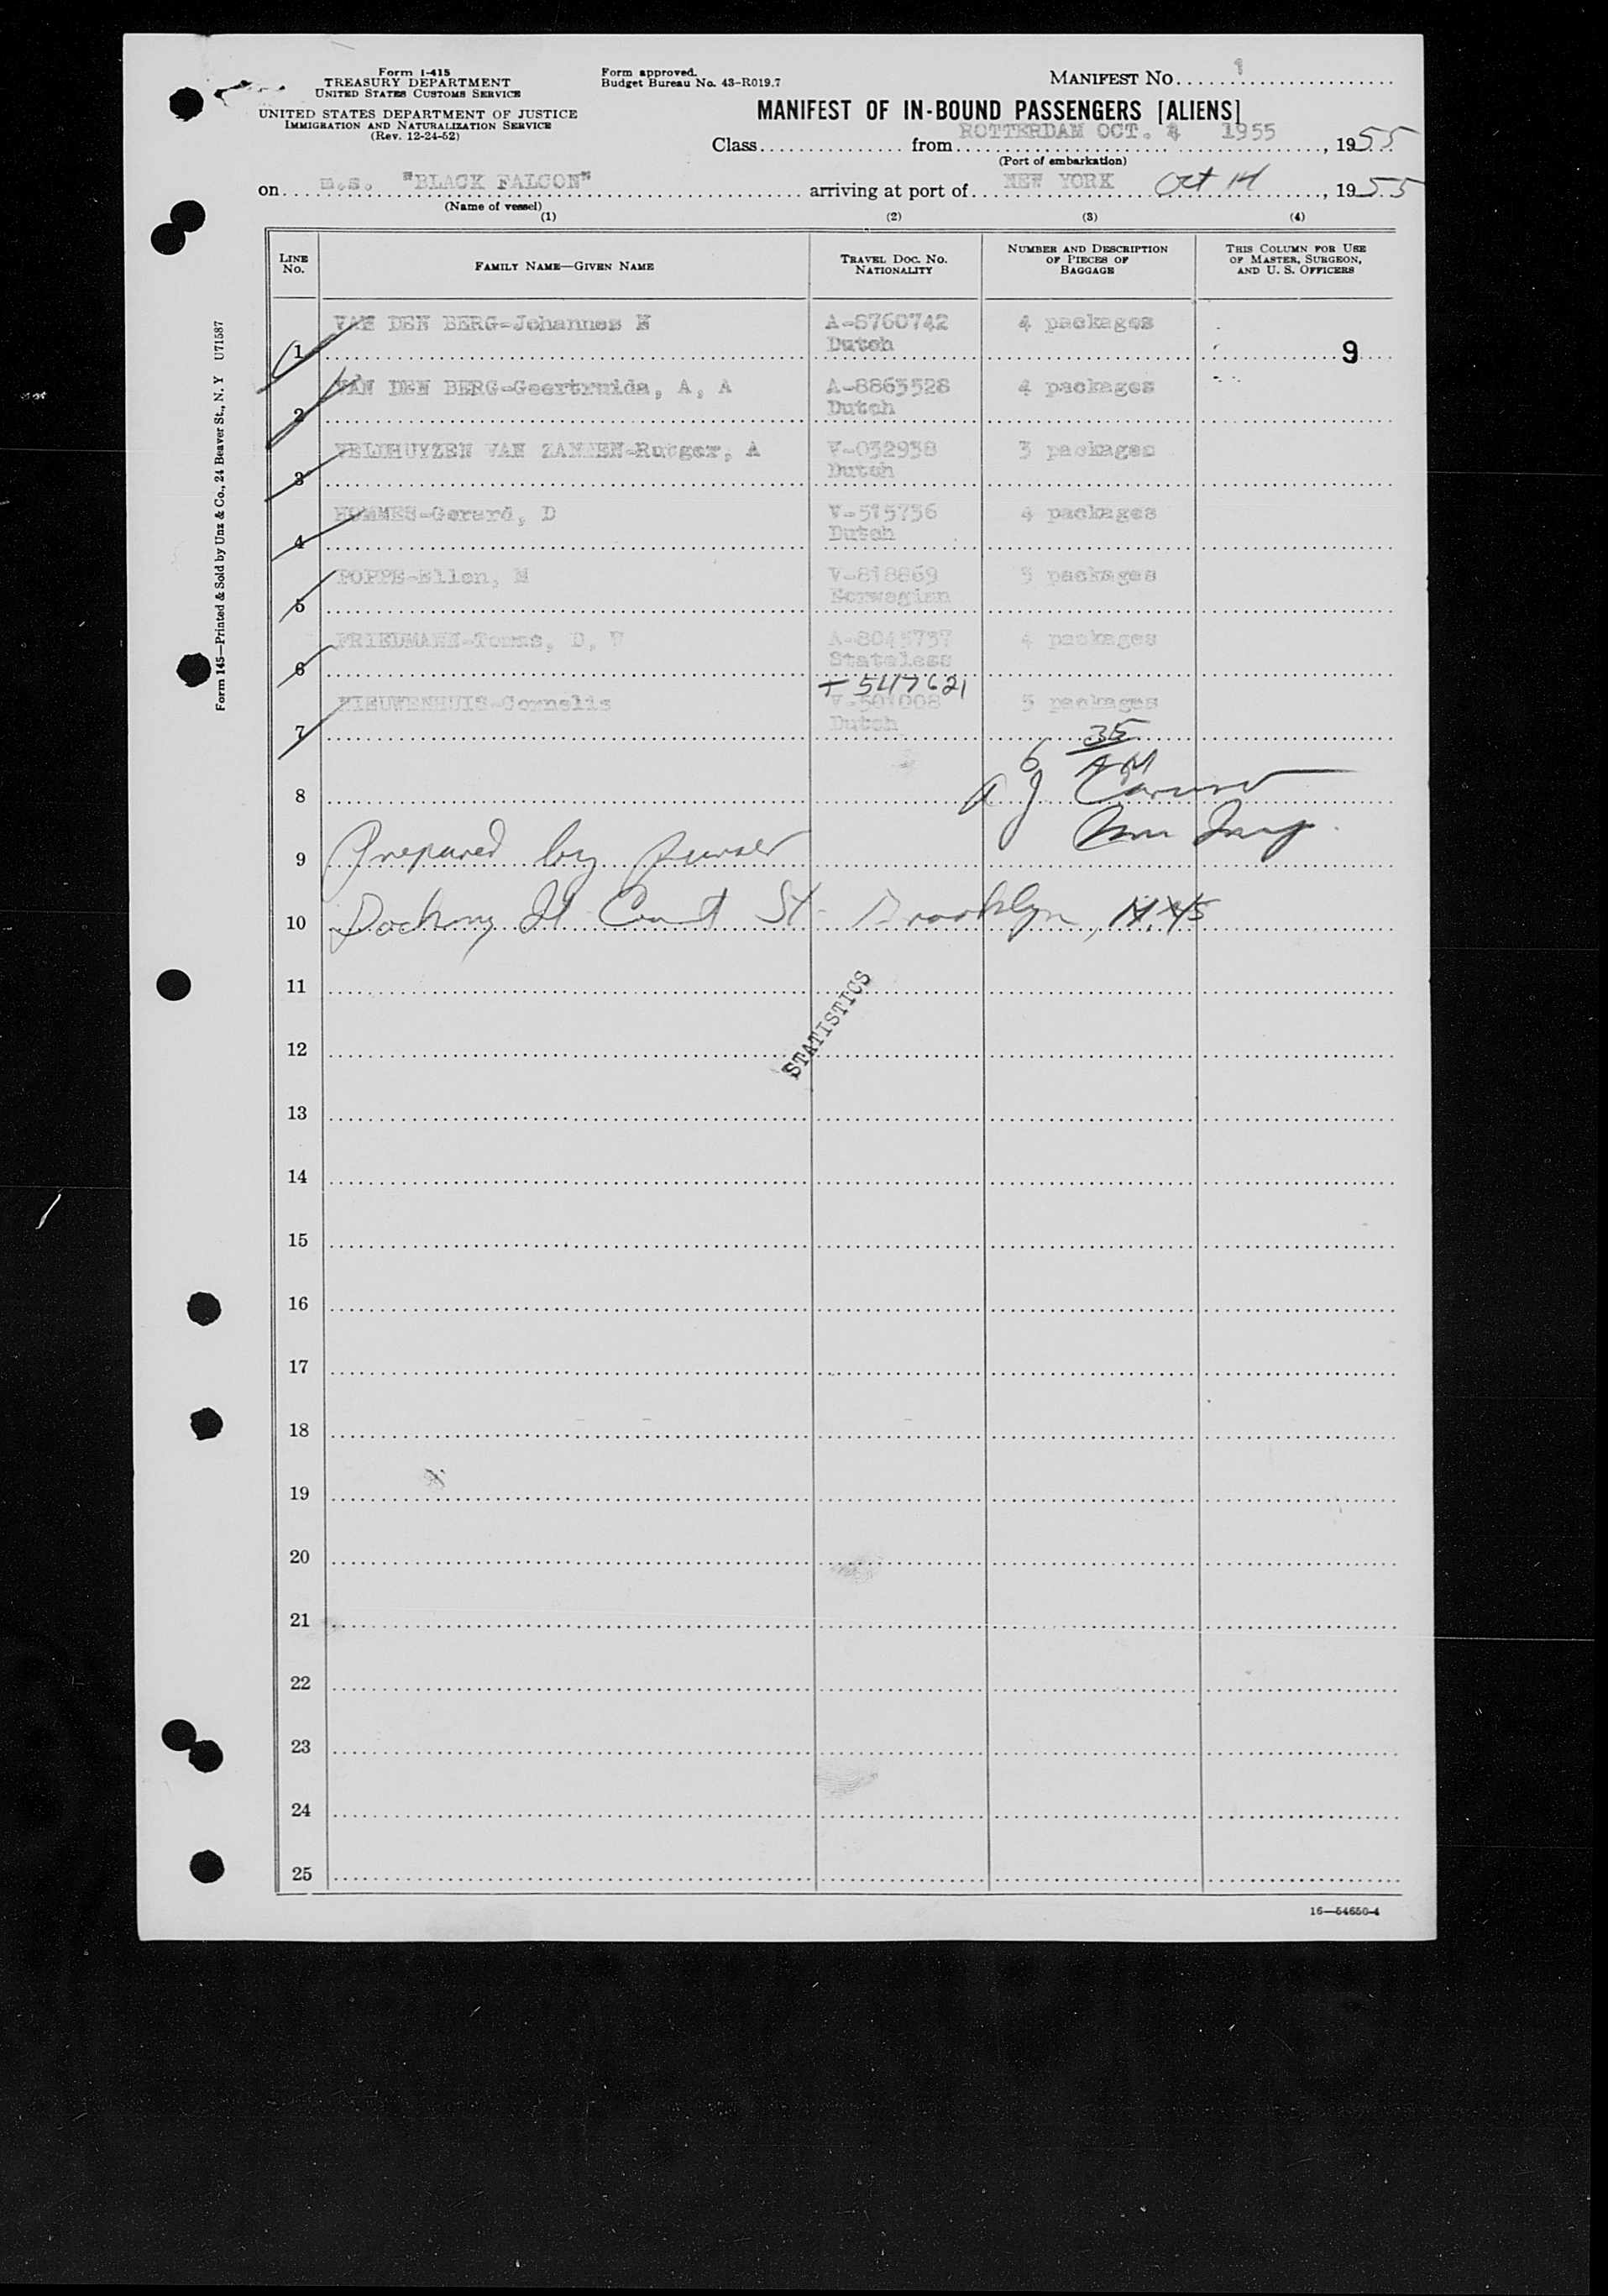 Form I-415
TREASURY DEPARTMENT
UNITED STATES CUSTOMS SERVICE
UNITED STATES DEPARTMENT OF JUSTICE
IMMIGRATION AND NATURALIZATION SERVICE
(Rev. 12-24-52)
Form approved.
Budget Bureau No. 43-R019.7
MANIFEST NO. 1
MANIFEST OF IN-BOUND PASSENGERS [ALIENS]
Class from ROTTERDAM OCT. 4 1955, 1955
(Port of embarkation)
on m.s. "BLACK FALCON" arriving at port of NEW YORK Oct 14, 1955
(Name of vessel)
(1) (2) (3) (4)
LINE NO. FAMILY NAME—GIVEN NAME TRAVEL DOC. NO. NATIONALITY NUMBER AND DESCRIPTION OF PIECES OF BAGGAGE THIS COLUMN FOR USE OF MASTER, SURGEON, AND U. S. OFFICERS
VAN DEN BERG-Johannes N A-8760742 4 packages
1 Dutch 9
VAN DEN BERG-Geertruida, A, A A-8863528 4 packages
2 Dutch
VELDHUYZEN VAN ZANTEN-Rutger, A V-032938 3 packages
3 Dutch
HOMMES-Gerard, D V-515736 4 packages
4 Dutch
POPPE-Ellen, M V-818869 5 packages
5 Norwegian
FRIEDMANN-Tomas, D, A-8045737 4 packages
6 Stateless
T-547621
NIEUWENHUIS-Cornelis V-501008 5 packages
7 Dutch
6 35 AM
8 A J Caruso
Imm Insp.
9 Prepared by purser
10 Docking at Court St Brooklyn,
11
STATISTICS
12
13
14
15
16
17
18
19
20
21
22
23
24
25
16—54650-4
Form 145—Printed & Sold by Unz & Co., 24 Beaver St., N. Y U71587